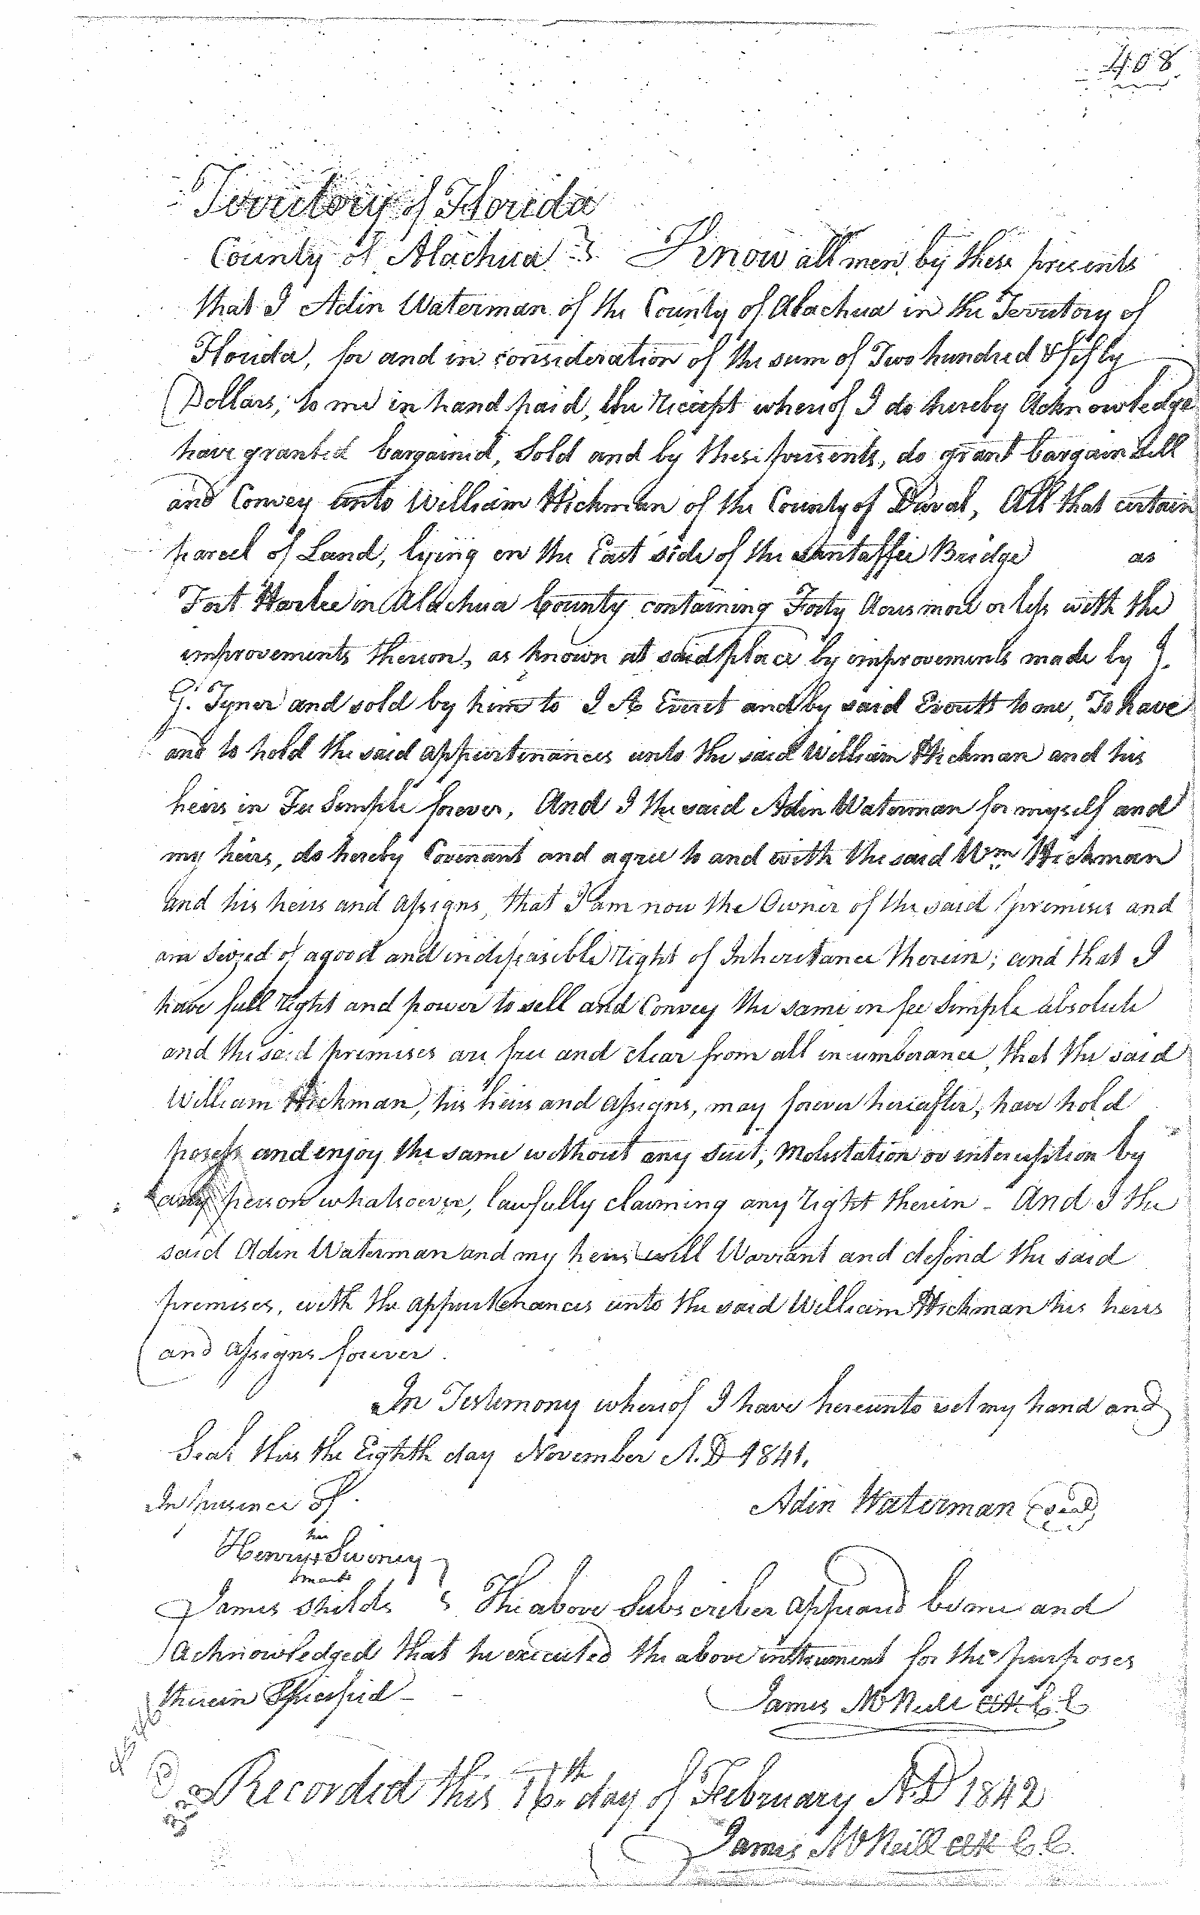 408
Territory of Florida
County of Alachua } Know all men by these presents
that I Adin Waterman of the County of Alachua in the Territory of
Florida, for and in consideration of the sum of Two hundred & fifty
Dollars, to me in hand paid, the receipt whereof I do hereby Acknowledge
have granted bargained, sold and by these presents, do grant bargain sell
and Convey unto William Hickman of the County of Duval, All that certain
parcel of Land, lying on the East side of the Santaffee Bridge as
Fort Harlee in Alachua County containing Forty Acres more or less with the
improvements thereon, as known at said place by improvements made by J.
G. Tyner and sold by him to I A Everet and by said Everett to me, To have
and to hold the said appurtenances unto the said William Hickman and his
heirs in Fee Simple forever, And I the said Adin Waterman for myself and
my heirs, do hereby Covenant and agree to and with the said Wm Hickman
and his heirs and assigns, that I am now the Owner of the said premises and
am seized of a good and indefeasible right of Inheritance therein; and that I
have full right and power to sell and Convey the same in fee simple absolute
and the said premises are free and clear from all incumberance, that the said
William Hickman, his heirs and assigns, may forever hereafter, have hold
posess and enjoy the same without any suit, molestation or interuption by
any person whatsoever, lawfully claiming any right therein - And I the
said Adin Waterman and my heirs will Warrant and defend the said
premises, with the appurtenances unto the said William Hickman his heirs
and assigns forever.
In Testimony whereof I have hereunto set my hand and
Seal this the Eighth day November A.D 1841.
In presence of.
Adin Waterman (seal)
his
Henry x Sweney
mark
James Shields } The above Subscriber appeared before me and
Acknowledged that he executed the above instrument for the purposes
therein Specified -
James McNeill Clk C. C.
Recorded this 16th day of February A.D 1842
James McNeill Clk C. C.